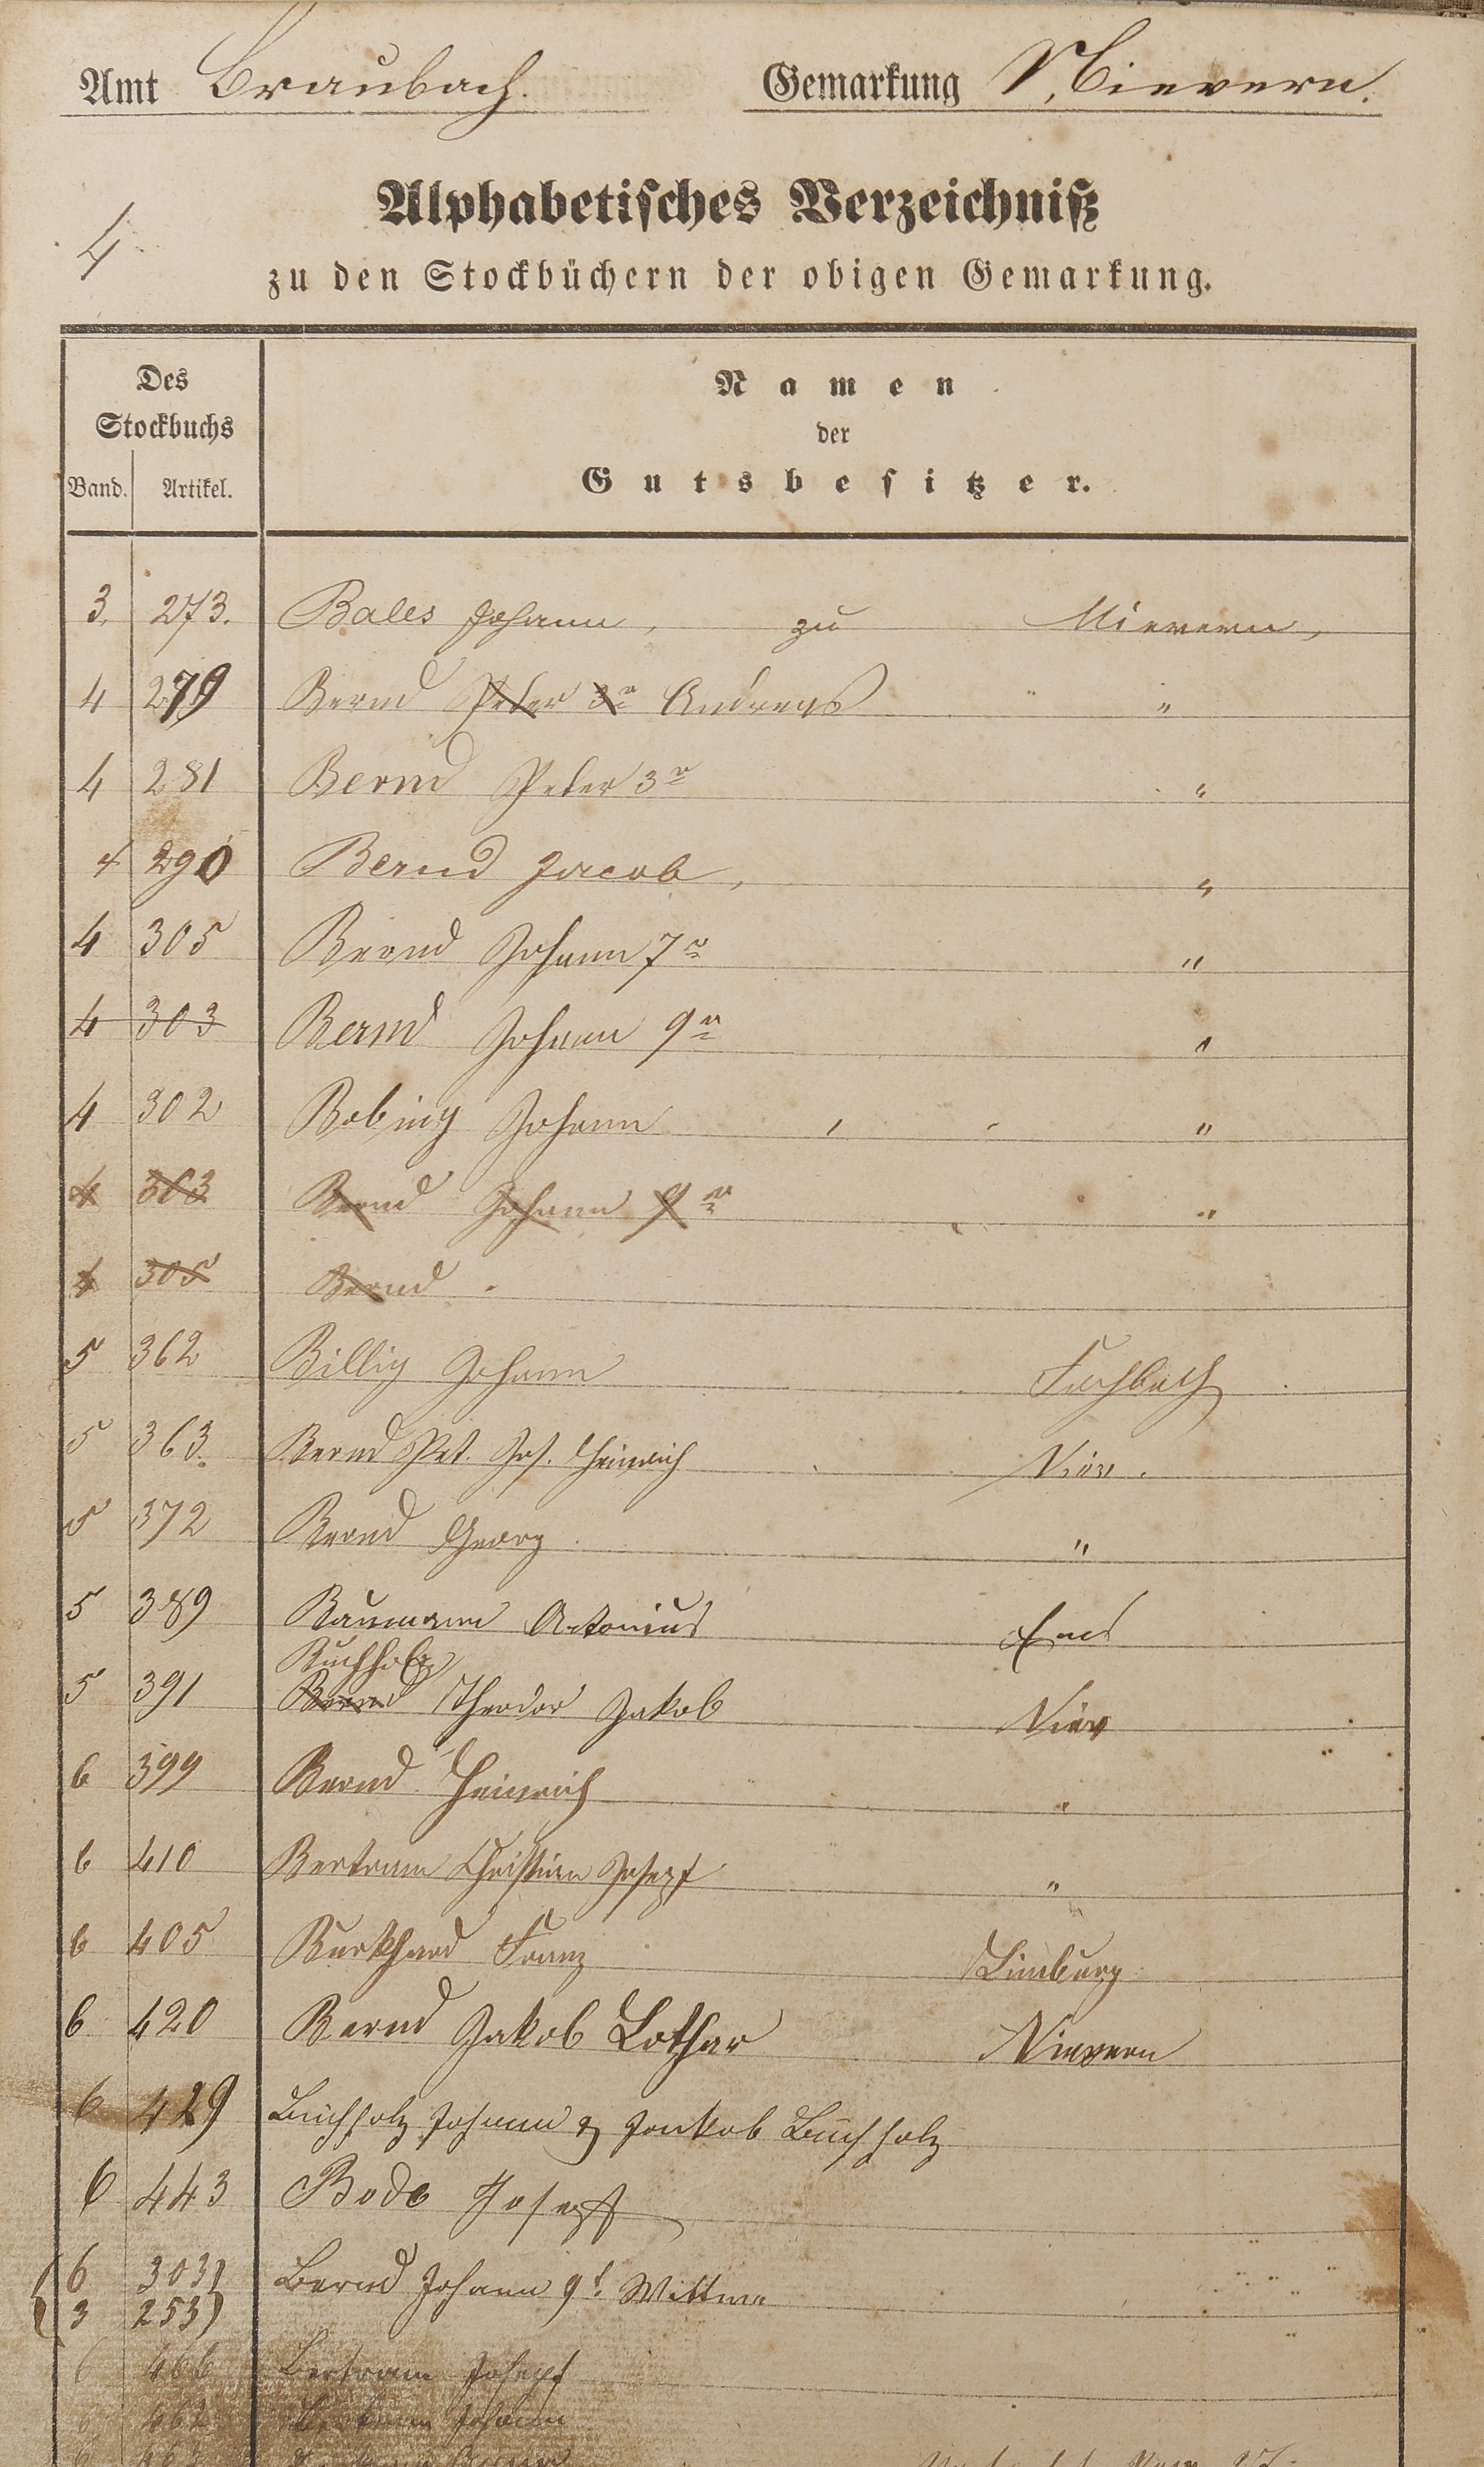 Amt Braubach. Gemarkung Nievern.
4
Alphabetisches Verzeichniß
zu den Stockbüchern der obigen Gemarkung.
Des
Stockbuchs
Band. Artikel.
Namen
der
Gutsbesitzer.
3. 273. Bales Johann, zu Nievern,
4 279 Bernd Peter 3r Andreas "
4 281 Bernd Peter 3r "
4 290 Bernd Jacob, "
4 305 Bernd Johann 7r "
4 303 Bernd Johann 9r "
4 302 Bobing Johann "
4 303 Bernd Johann 9r "
4 305 Bernd
5 362 Billig Johann Fachbach
5 363. Bernd Pet. Jos. Heinrich Niev.
5 372 Bernd Georg "
5 389 Baumann Antonius Ems
Buchholz
5 391 Bernd Theodor Jakob Niev
6 399 Bernd Heinrich "
6 410 Bertram Christian Josepf "
6 405 Burkhard Franz Limburg
6 420 Bernd Jakob Lothar Nievern
6 429 Buchholz Johann & Jakob Buchholz
6 443 Bode Josepf
6 303 Bernd Johann 9t. Wittwe
3 253
6 466 Bertram Josepf
6 462 Bertram Johann
6 463